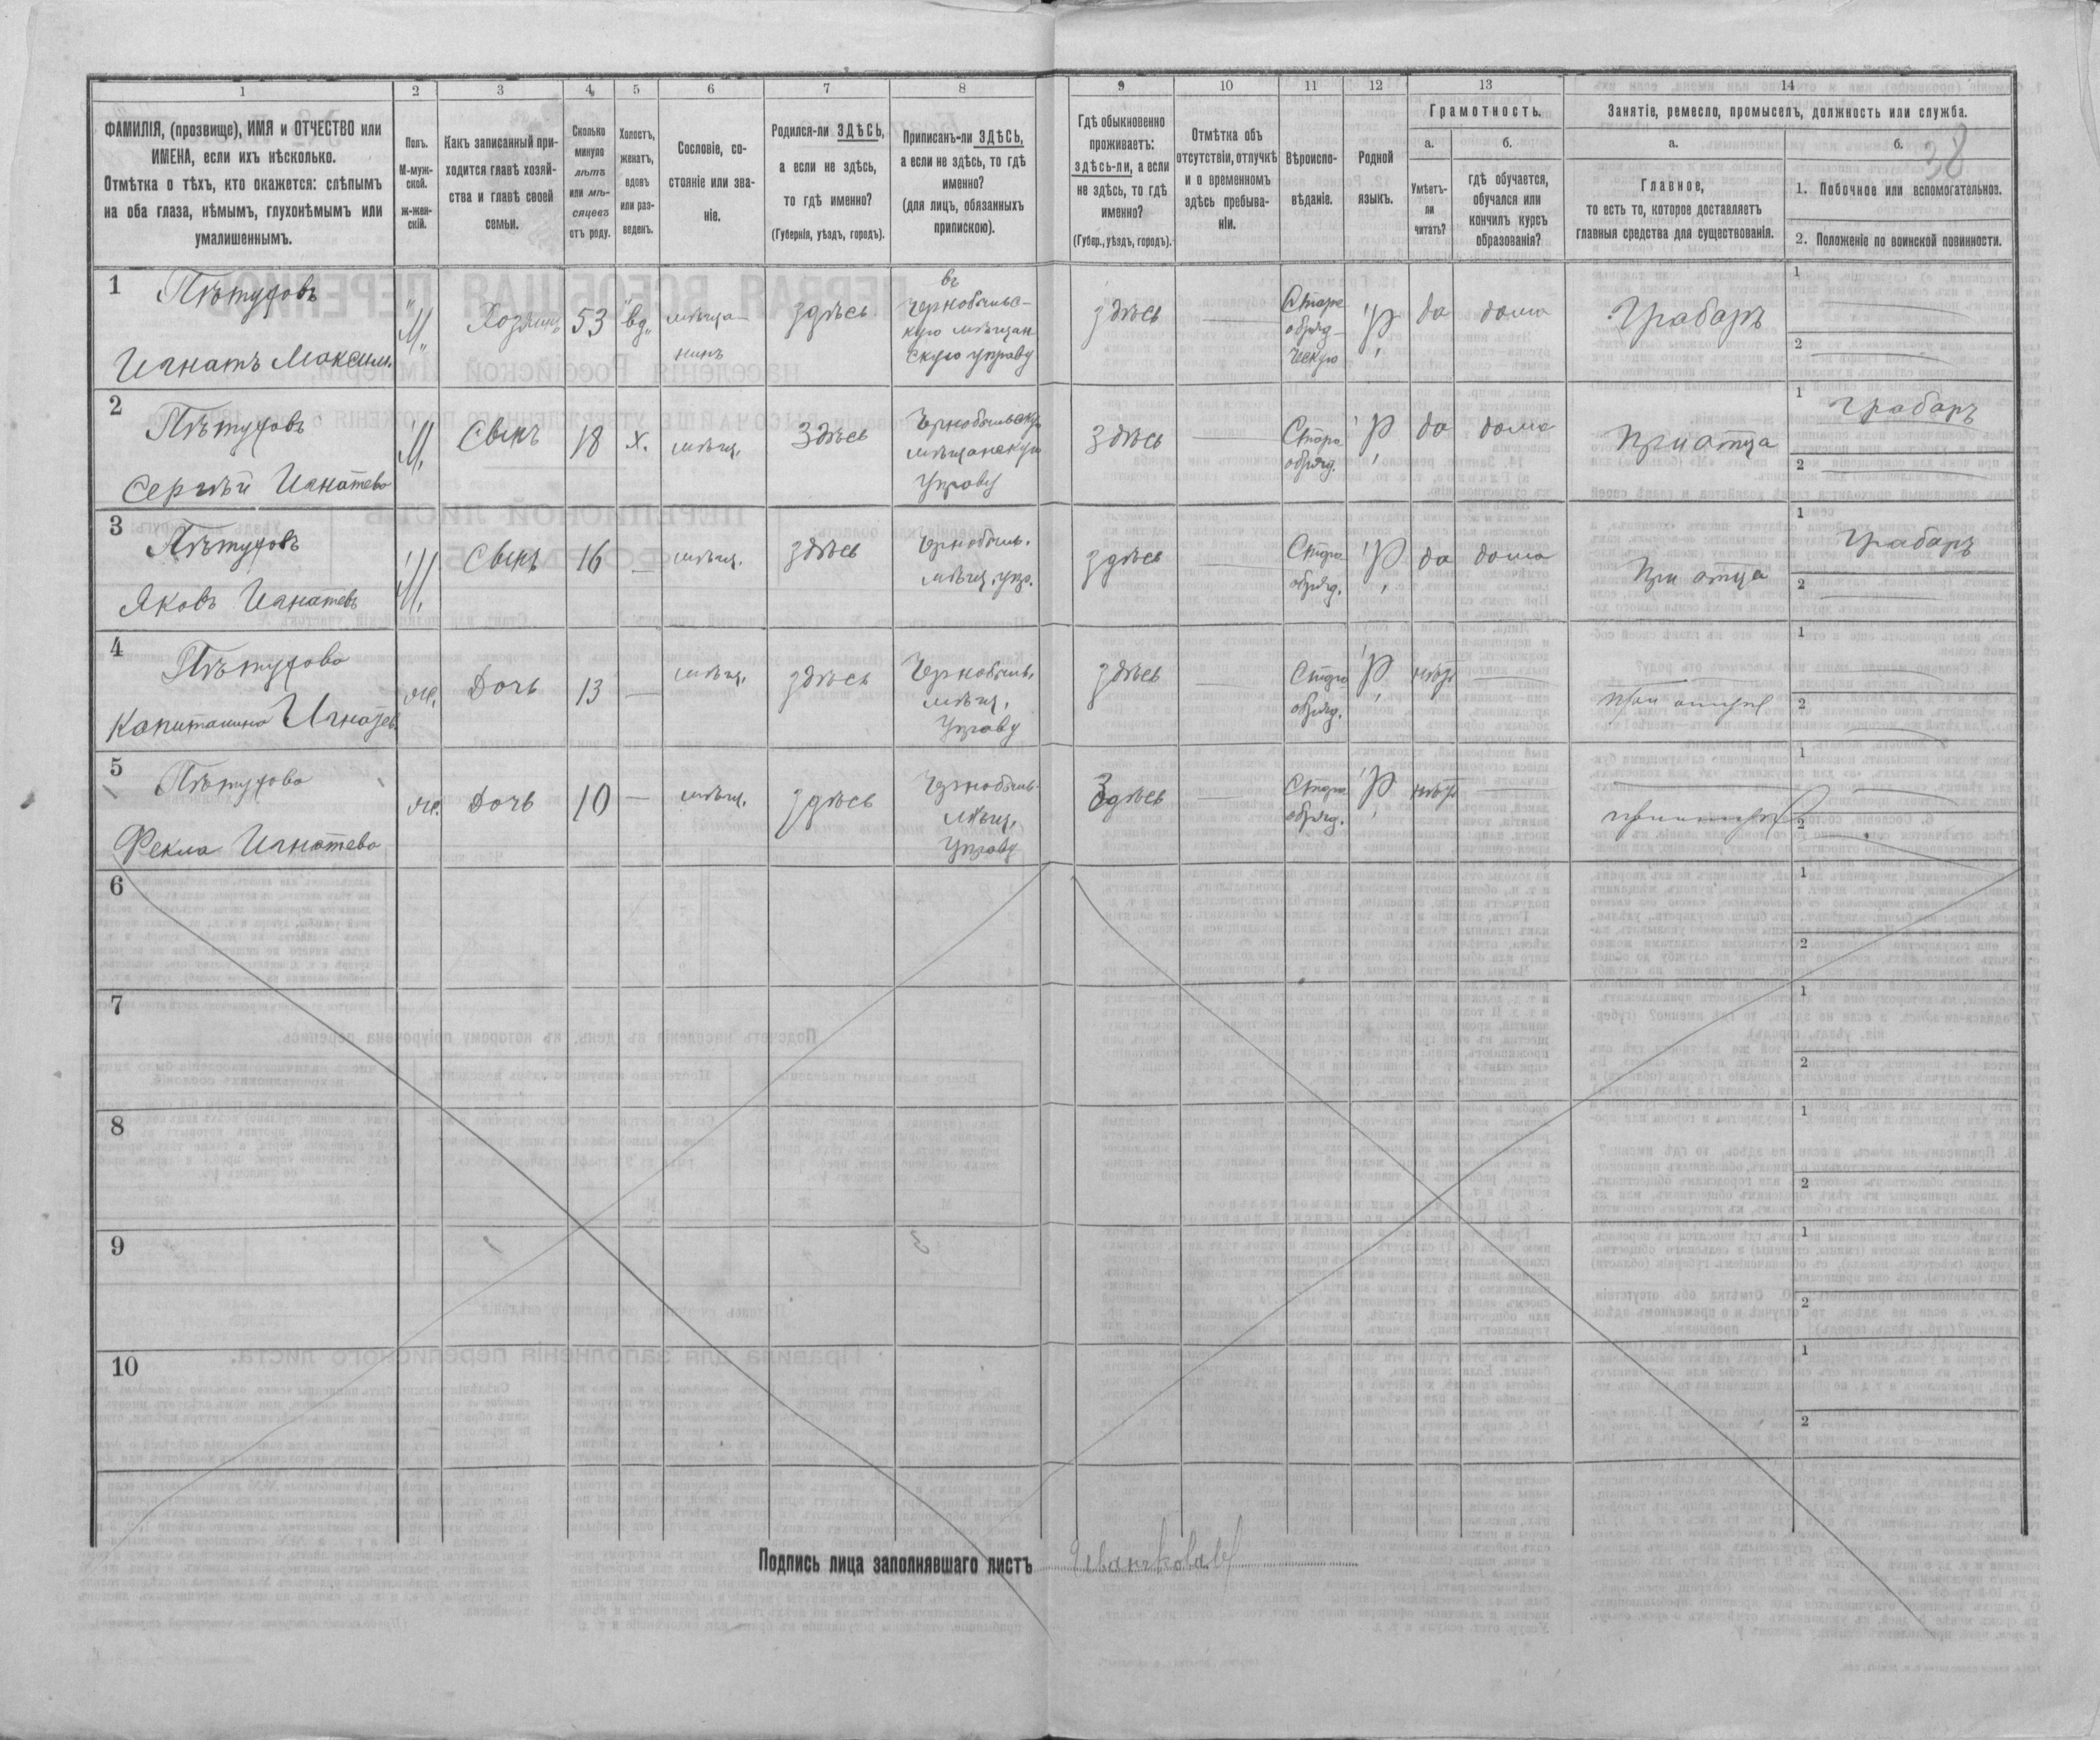 1 2 3 4 5 6 7 8 9 10 11 12 13 14
ФАМИЛІЯ, (прозвище), ИМЯ и ОТЧЕСТВО или
ИМЕНА, если ихъ нѣсколько.
Отмѣтка о тѣхъ, кто окажется: слѣпымъ
на оба глаза, нѣмымъ, глухонѣмымъ или
умалишеннымъ.
Полъ.
М-муж-
ской.
ж-жен-
скій.
Какъ записанный при-
ходится главѣ хозяй-
ства и главѣ своей
семьи.
Сколько
минуло
лѣтъ
или мѣ-
сяцевъ
отъ роду.
Холостъ,
женатъ,
вдовъ
или раз-
веденъ.
Сословіе, со-
стояніе или зва-
ніе.
Родился-ли ЗДѢСЬ,
а если не здѣсь,
то гдѣ именно?
(Губернія, уѣздъ, городъ).
Приписанъ-ли ЗДѢСЬ,
а если не здѣсь, то гдѣ
именно?
(для лицъ, обязанныхъ
припискою).
Гдѣ обыкновенно
проживаетъ:
здѣсь-ли, а если
не здѣсь, то гдѣ
именно?
(Губер., уѣздъ, городъ).
Отмѣтка объ
отсутствіи, отлучкѣ
и о временномъ
здѣсь пребыва-
ніи.
Вѣроиспо-
вѣданіе.
Родной
языкъ.
Грамотность.
а.
Умѣетъ-
ли
читать?
б.
гдѣ обучается,
обучался или
кончилъ курсъ
образованія?
Занятіе, ремесло, промыселъ, должность или служба.
а.
Главное,
то есть то, которое доставляетъ
главныя средства для существованія.
б.
38
1. Побочное или вспомогательное.
2. Положеніе по воинской повинности.
1
Пѣтуховъ
Игнатъ Максим.
"М"
Хозяинъ
53
"вд"
мѣща-
нинъ
здѣсь
въ
Чернобыльс-
кую мѣщан
скую управу
здѣсь
Старо
обряд-
ческую
Р
да
дома
Грабаръ
1
2
2
Пѣтуховъ
Сергѣй Игнатево
М.
Сынъ
18
х.
мѣщ.
здѣсь
Чернобыльскую
мѣщанскую
Управу
здѣсь
Старо
обряд.
Р
да
дома
При отца
1
Грабаръ
2
3
Пѣтуховъ
Яковъ Игнатевъ
М.
Сынъ
16
мѣщ.
здѣсь
Чернобыль.
мѣщ. упр.
здѣсь
Старо
обряд.
Р
да
дома
При отца
1
Грабаръ
2
4
Пѣтухова
Капиталина Игнатев.
же.
Дочь
13
мѣщ.
здѣсь
Чернобыль.
мѣщ.
Управу
здѣсь
Старо
обряд.
Р
нѣтъ
1
2
5
Пѣтухова
Фекла Игнатева
же.
Дочь
10
мѣщ.
здѣсь
Чернобыль.
мѣщ.
Управу
здѣсь
Старо
обряд.
Р
нѣтъ
1
2
6
1
2
7
1
2
8
1
2
9
1
2
10
1
2
Подпись лица заполнявшаго листъ